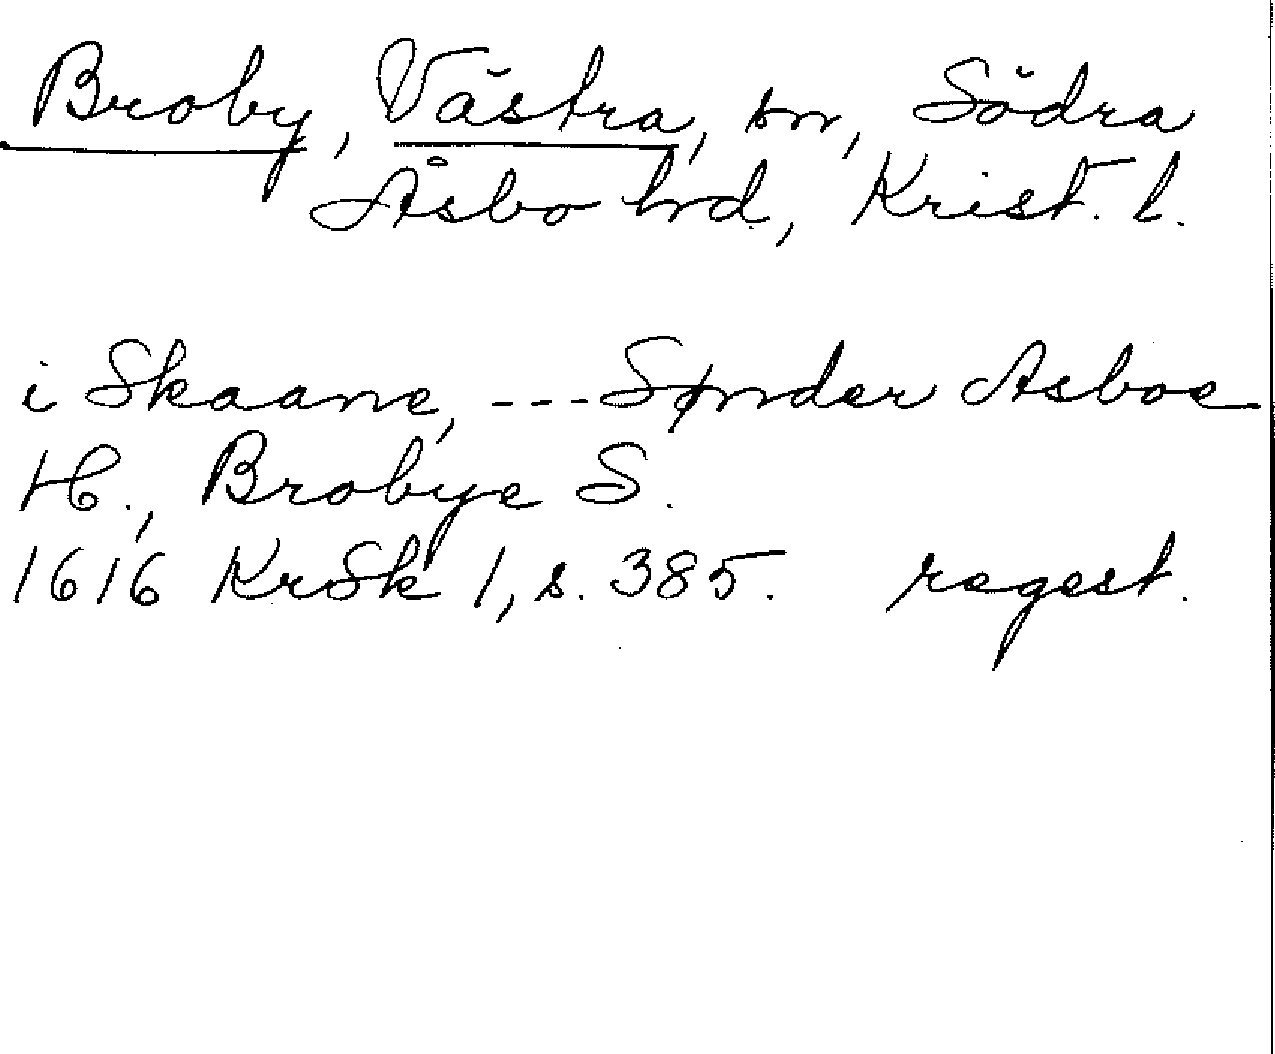 Broby, Västra, sn, Södra
Åsbo hrd, Krist. l.
i Skaane, --- Sønder Asboe
H., Brobye S.
1616 KrSk 1, s. 385. regest.